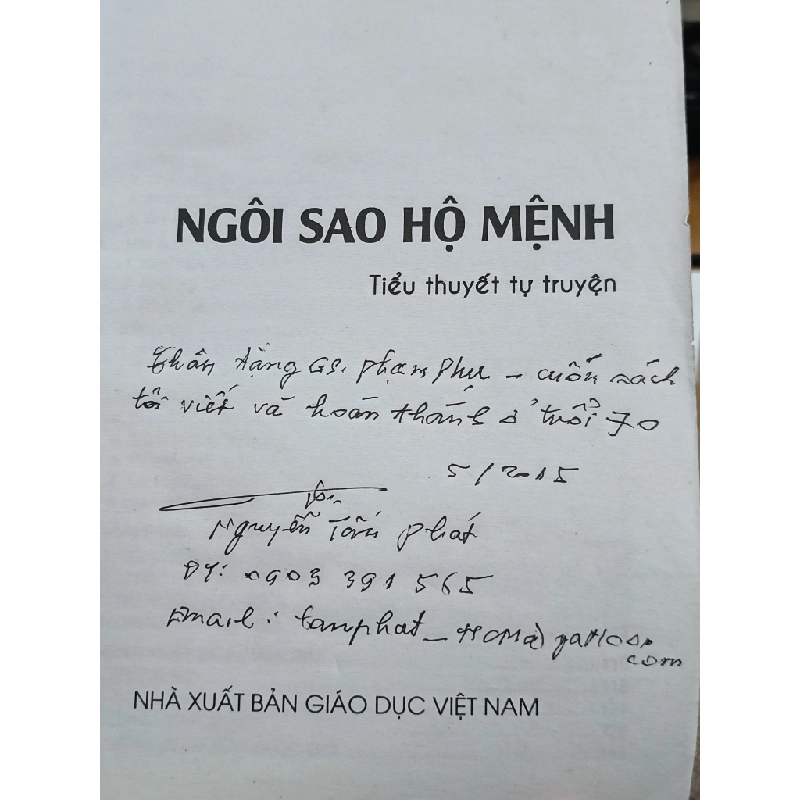 NGÔI SAO HỘ MỆNH
Tiểu thuyết tự truyện
Thân tặng GS. Phạm Phụ – cuốn sách
tôi viết và hoàn thành ở tuổi 70
5/2015
Nguyễn Tấn Phát
ĐT: 0903 391 565
Email: tanphat_
com
NHÀ XUẤT BẢN GIÁO DỤC VIỆT NAM